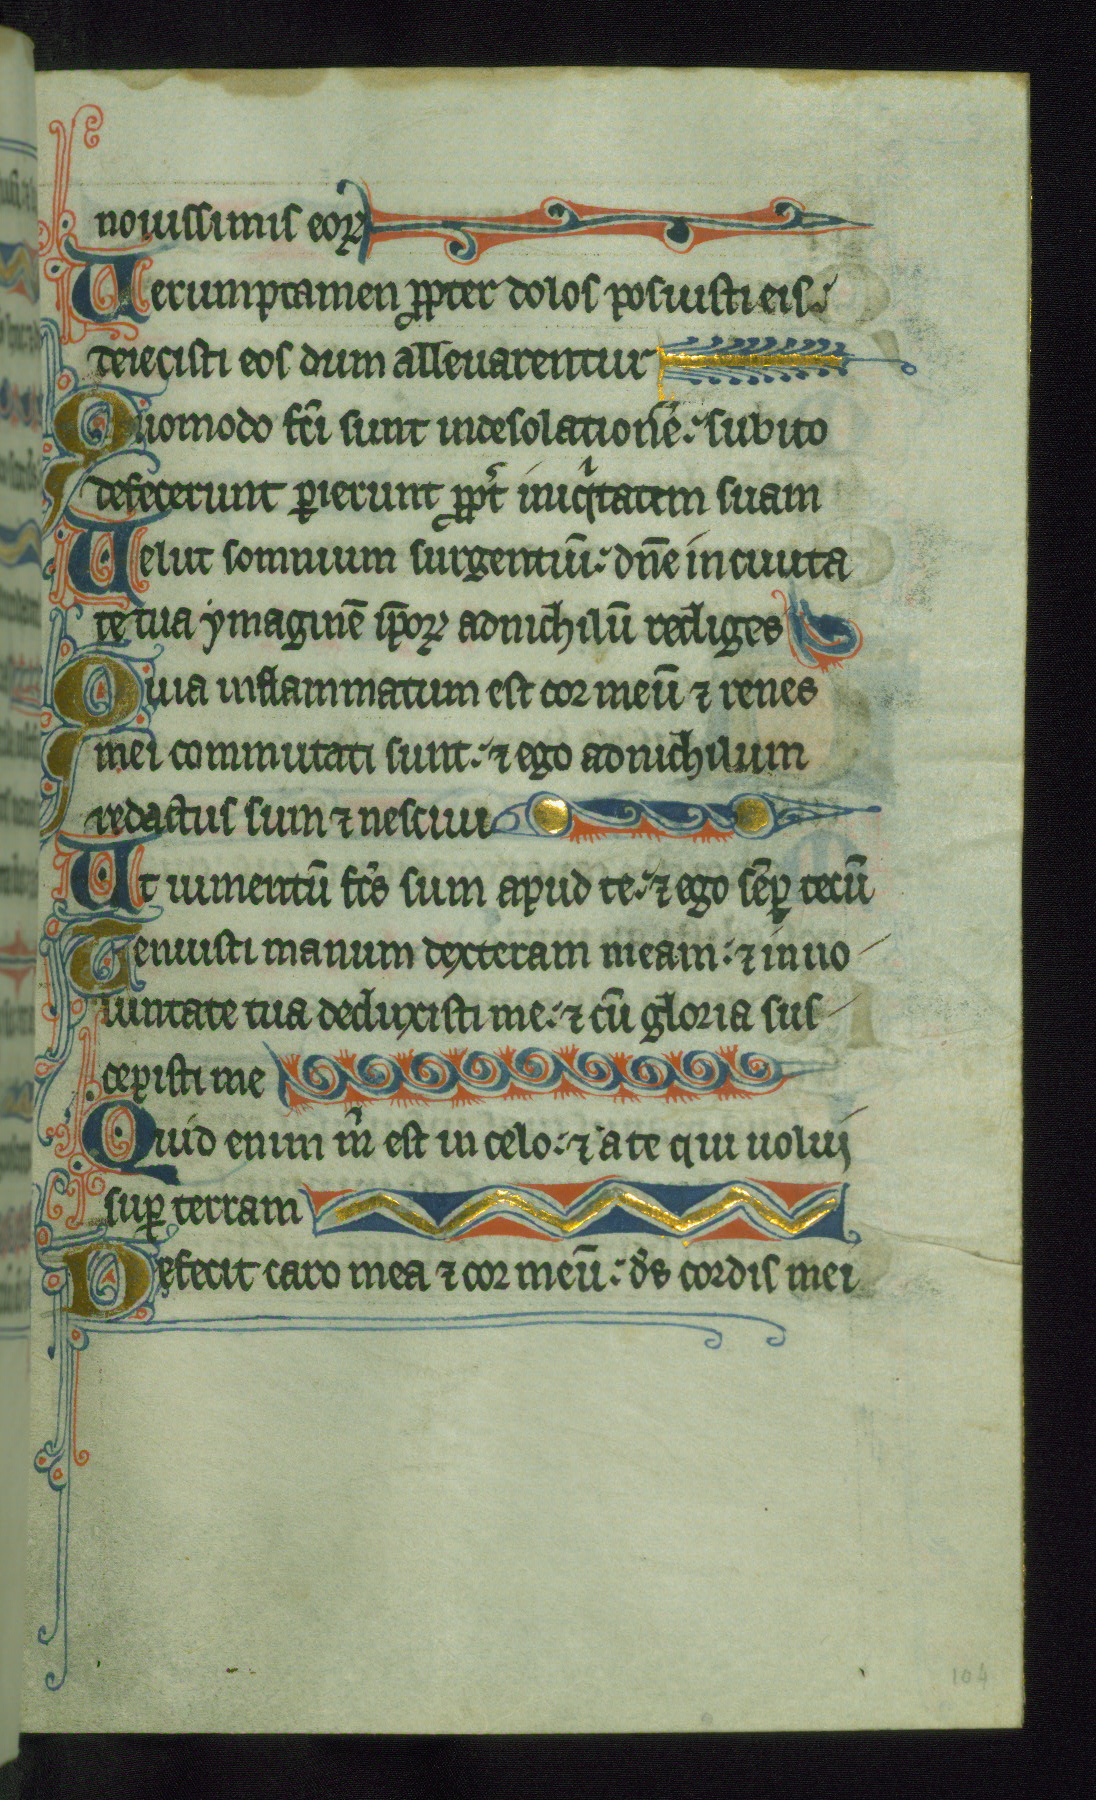 nouissimis eoꝝ
Uerumptamen ꝓpter dolos posuisti eis:
deiecisti eos dum alleuarentur
Quomodo fc̄i sunt in desolationē: subito
defecerunt ꝑierunt ꝓpt̄ iniqͥtatem suam
Uelut somnium surgentiū: dn̄e in ciuita
te tua ymaginē ip̄oꝝ ad nichilū rediges
Quia inflammatum est cor meū ⁊ renes
mei commutati sunt: ⁊ ego ad nichilum
redactus sum ⁊ nesciui
Ut iumentū fc̄s sum apud te: ⁊ ego sēꝑ tecū
Tenuisti manum dexteram meam: ⁊ in uo
luntate tua deduxisti me: ⁊ cū gloria sus
cepisti me
Quid enim m̄ est in celo: ⁊ a te qui uoluj
suꝑ terram
Defecit caro mea ⁊ cor meū: ds̄ cordis mei
104